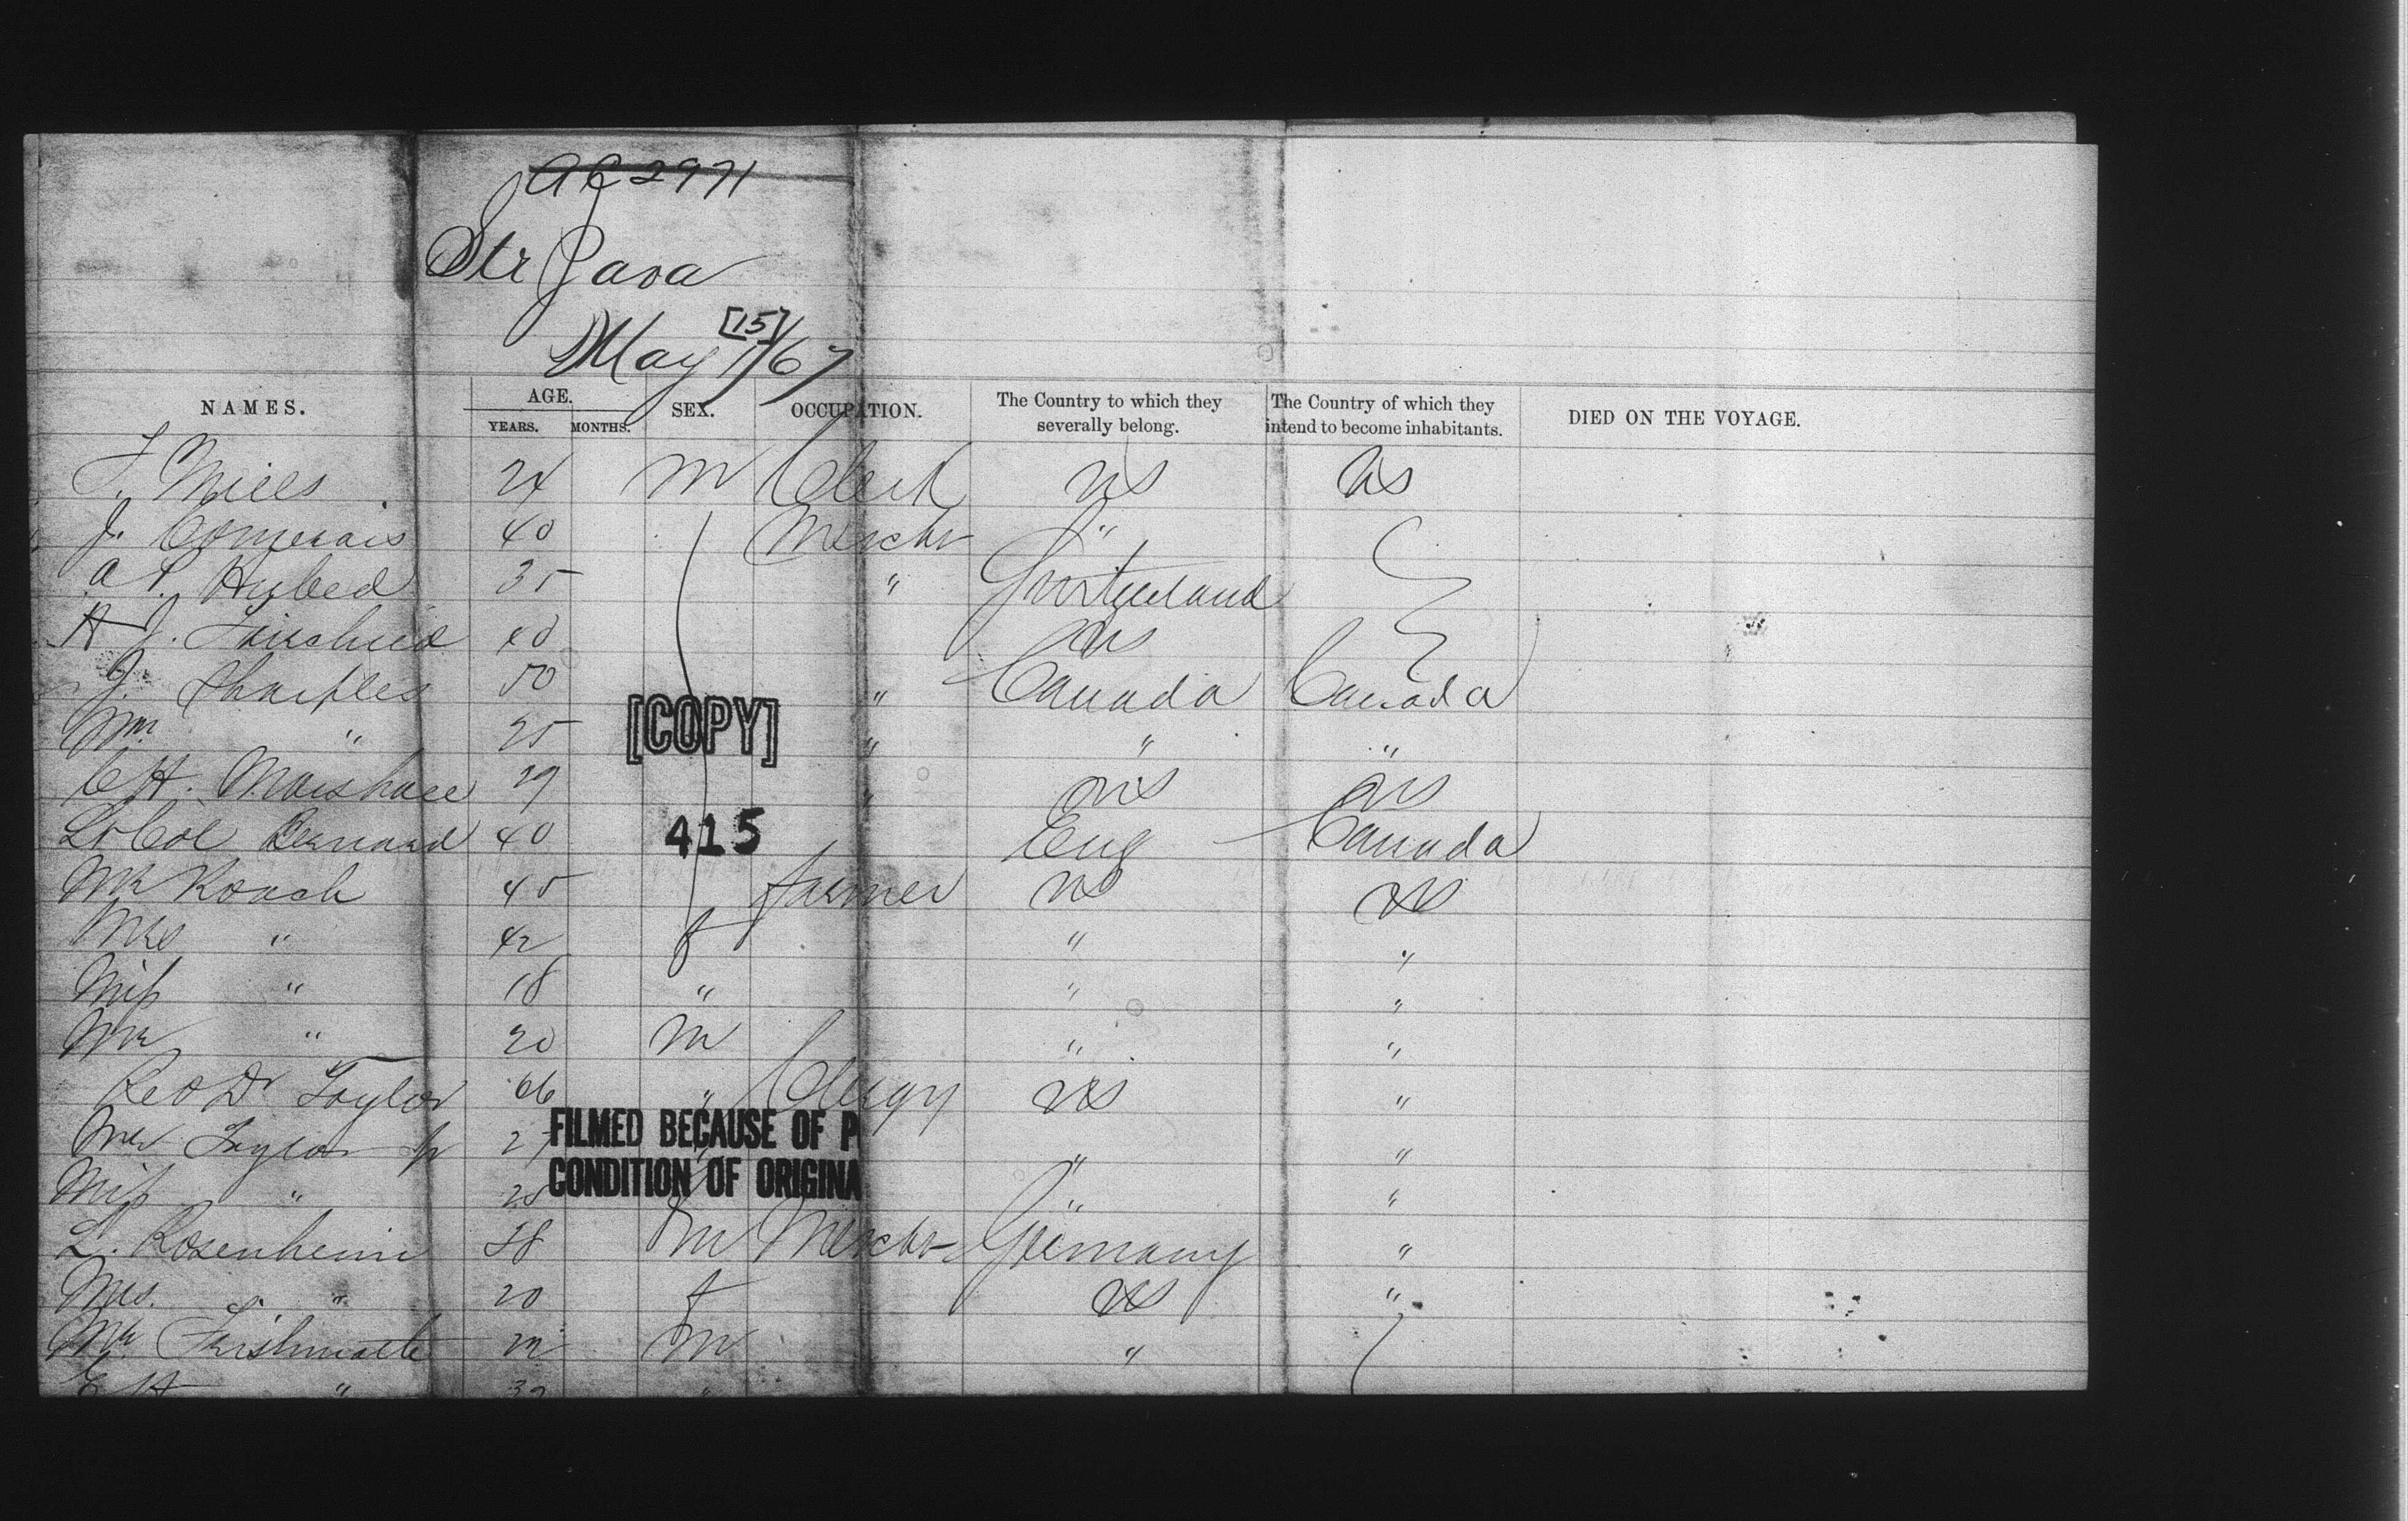 AC 2971
Str Java
[15]
May 1/67
NAMES. AGE. YEARS. MONTHS. SEX. OCCUPATION. The Country to which they severally belong. The Country of which they intend to become inhabitants. DIED ON THE VOYAGE.
T. Mills 24 M Clerk US US
J. 40 Mercht "
A P. 35 " Switzerland
H J. Fairchild 40 US
J. Sharples 50 " Canada Canada
Wm " 25 " " "
[COPY]
C H. Marshall 29 " US US
Lt Col Bernard 40 Eng Canada
415
Mr Roach 45 farmer US US
Mrs " 42 f " "
Miss " 18 " " "
Mr " 20 M " "
Rev Dr Taylor 66 " Clergy US "
Mr Taylor Jr 27 " " "
FILMED BECAUSE OF P
CONDITION OF ORIGINA
Miss " " "
L. Rosenheim 38 M Mercht Germany "
Mrs. " 20 f US "
Mr. M "
"